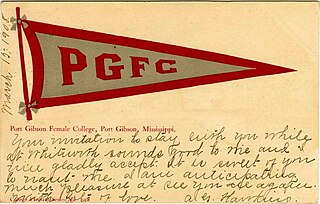 March 10, 1908
PGFC
Port Gibson Female College, Port Gibson, Mississippi.
Your invitation to stay with you while
at Whitworth sounds good to me and I
will gladly accept. It is sweet of you
to want me. I am anticipating
much pleasure at see you all again.
of love